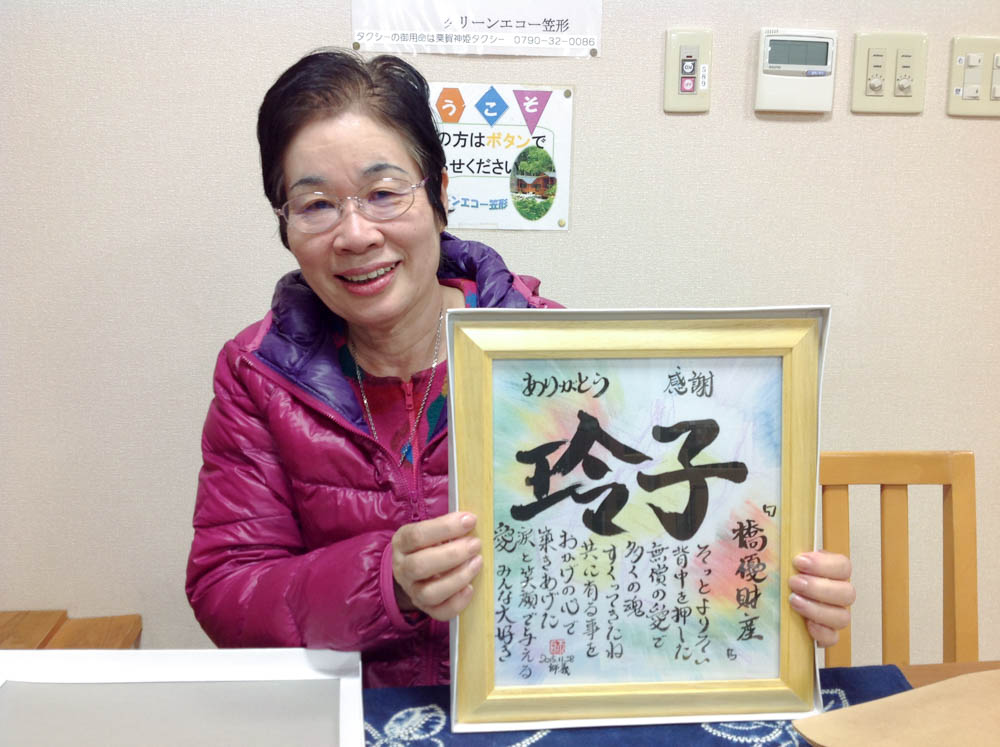 リーンエコー笠形
タクシーの御用命は粟賀神姫タクシー 0790-32-0086
うこそ
の方はボタンで
せください
ンエコー笠形
ありがとう 感謝
玲子
『橋優財産』
そっとよりそい
背中を押した
無償の愛で
多くの魂
すくってきたね
共に有る事を
おかげの心で
築きあげた
涙と笑顔で与える
愛 みんな大好き
2015.11.28